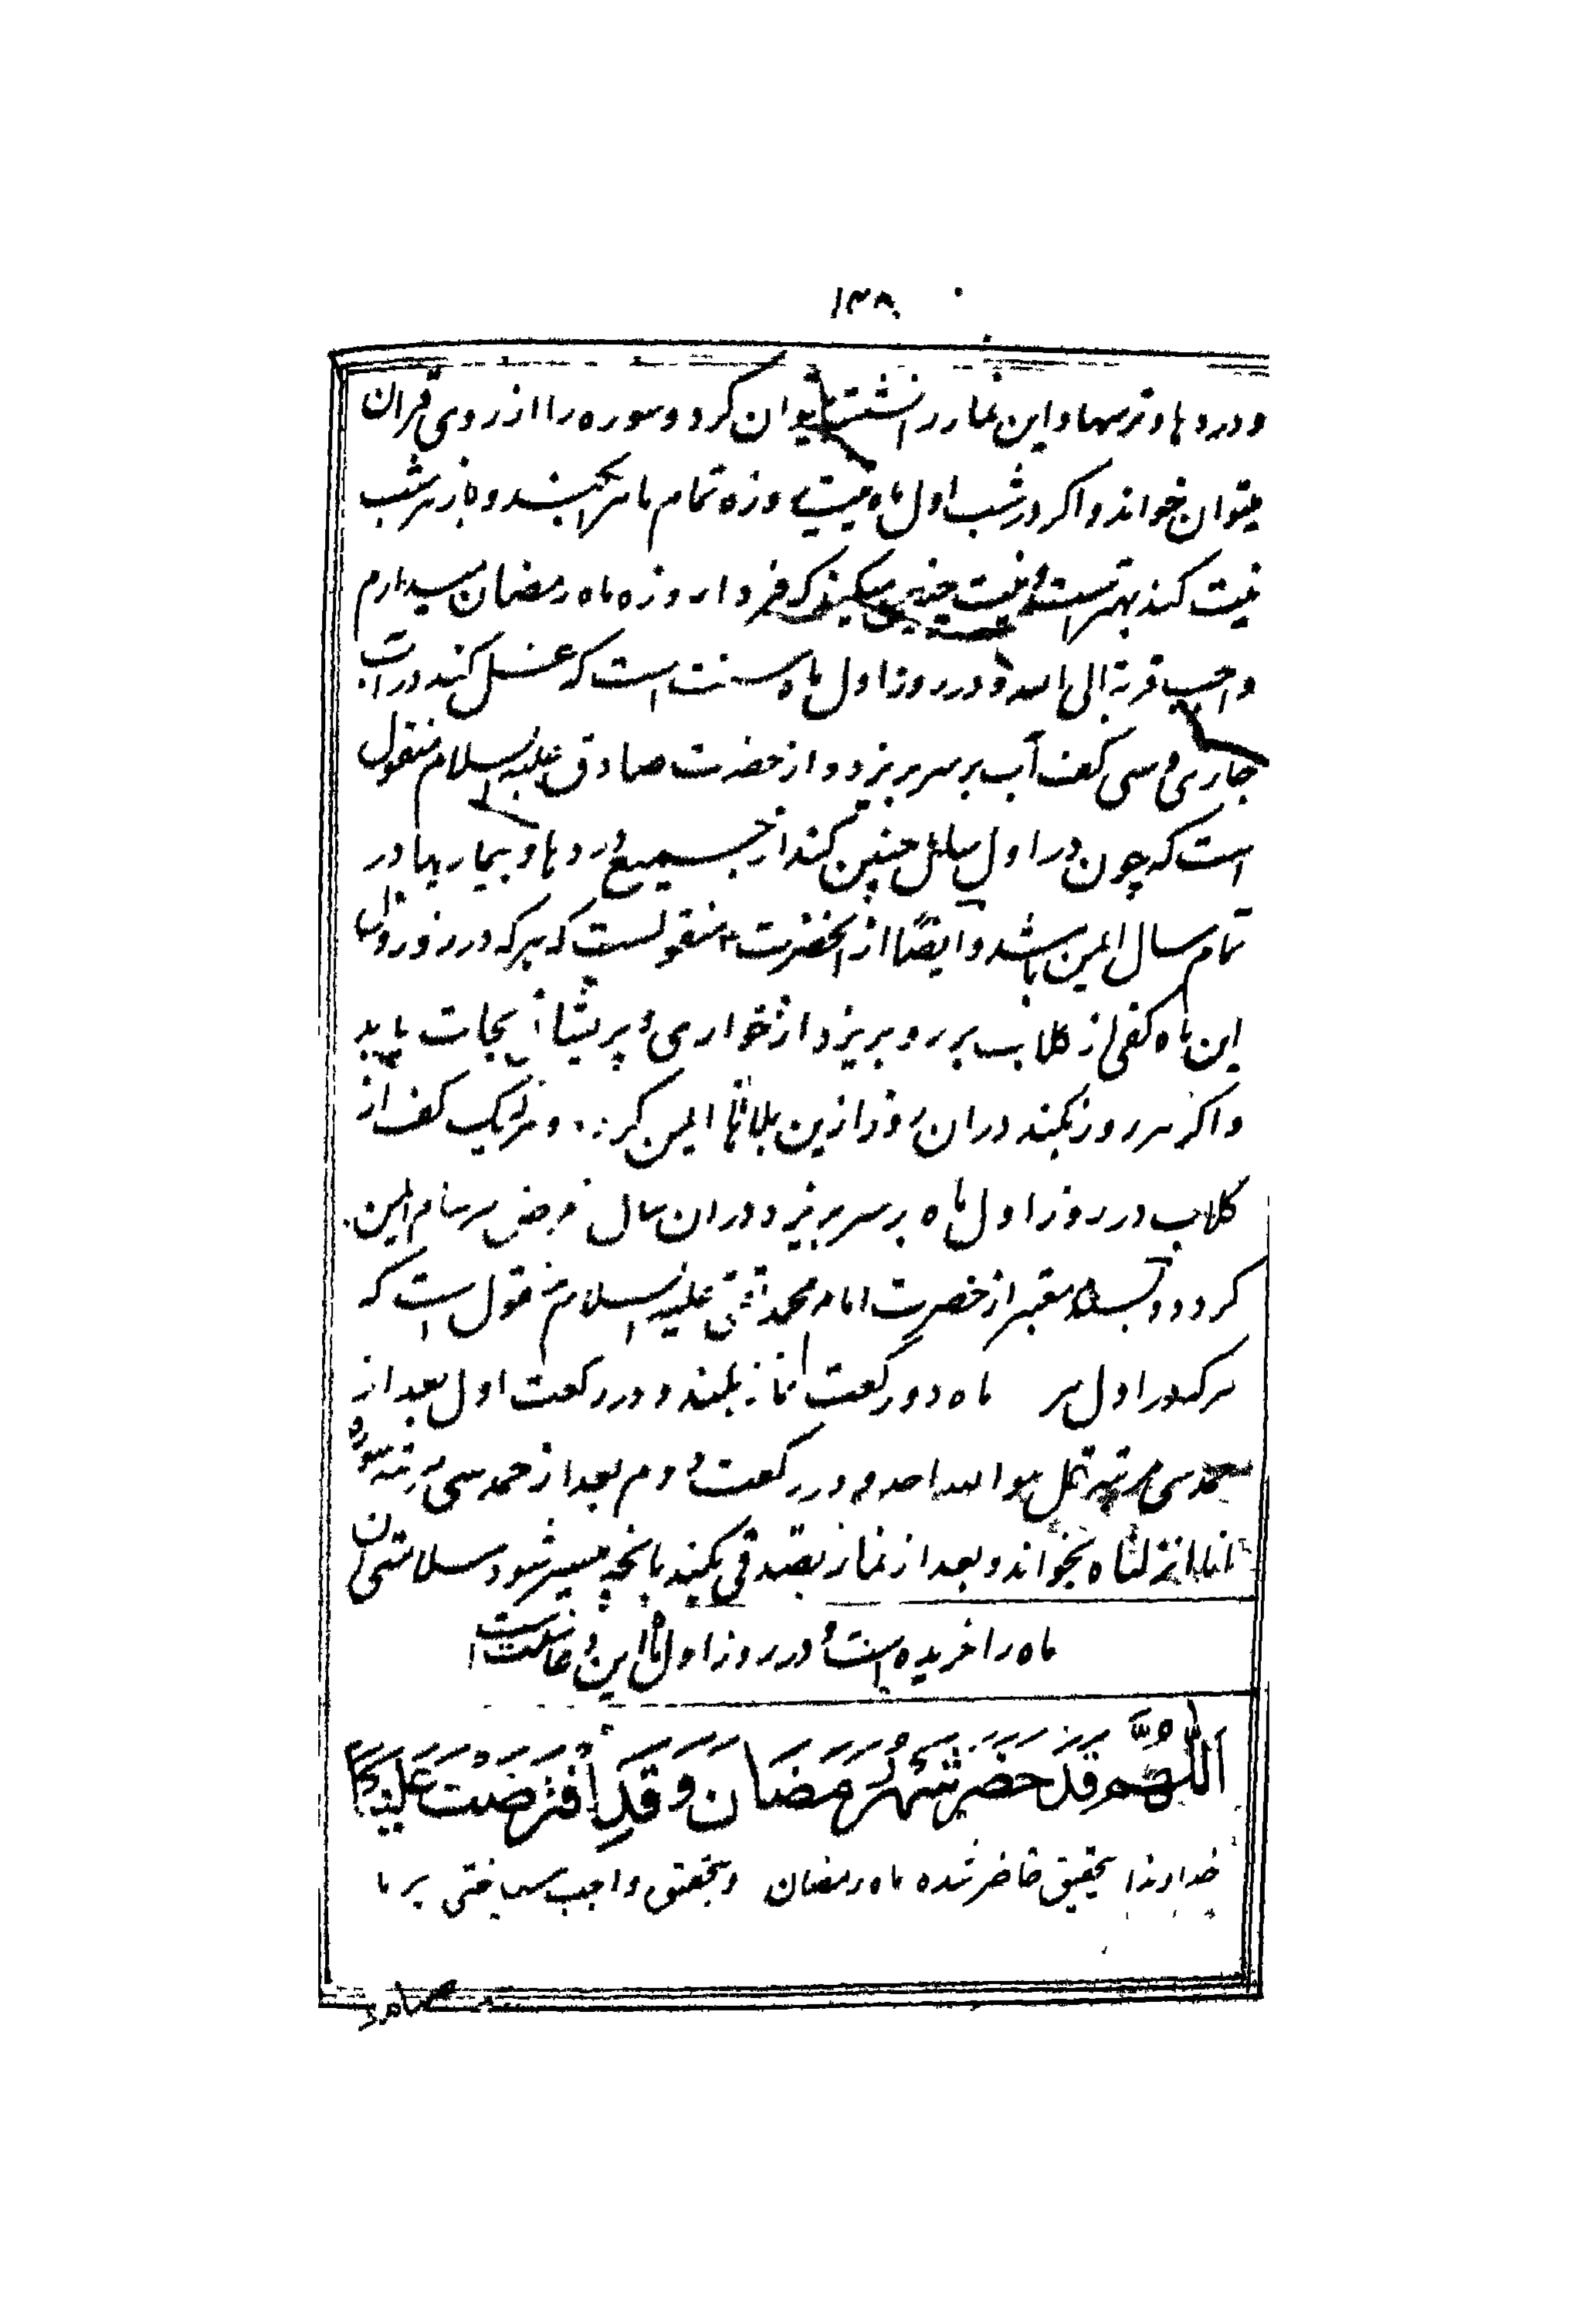 ۱۴۸
و دردها و ترسها و این نماز را نشسته میتوان کرد و سوره را از روی قران
میتوان خواند و اگر در شب اول ماه نیت روزه تمام ماه را بکند و باز هر شب
نیت کند بهتر است و نیت چنین میکند که فردا روزه ماه رمضان میدارم
واجب قربة الی الله و در روز اول ماه سنت است که غسل کند در آب
جاری و سی کف آب بر سر بریزد و از حضرت صادق علیه السلام منقول
است که چون در اول سال چنین کند از جمیع دردها و بیماریها در
تمام سال ایمن باشد و ایضا از انحضرت منقولست که هرکه در روز اول
این ماه کفی از کلاب بر رو بریزد از خواری و پریشانی نجات یابد
و اگر هر روز بکند در ان روز ازین بلاها ایمن گردد و هرکه یک کف از
کلاب در روز اول ماه بر سر بریزد در ان سال از مرض برسام ایمن
گردد و بسند معتبر از حضرت امام محمد تقی علیه السلام منقول است که
هرکه در اول هر ماه دو رکعت نماز بکند و در رکعت اول بعد از
حمد سی مرتبه قل هو الله احد و در رکعت دوم بعد از حمد سی مرتبه سوره
انا انزلناه بخواند و بعد از نماز تصدقی بکند بانچه میسر شود سلامتی ان
ماه را خریده است و در روز اول ماه این دعا سنت است
اَللّٰهُمَّ قَدْ حَضَرَ شَهْرُ رَمَضَانَ وَقَدِ افْتَرَضْتَ عَلَيْنَا
خداوندا بتحقیق حاضر شده ماه رمضان و بتحقیق واجب ساختی بر ما
صیامه